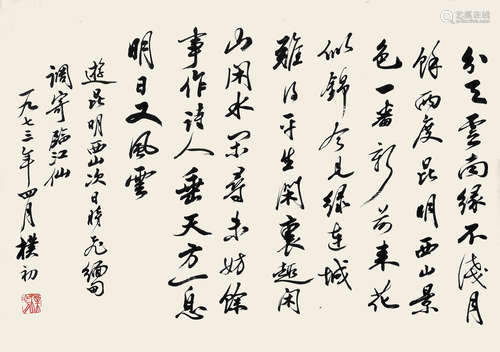 雲南緣不淺月
餘兩度昆明西山景
色一番新前來花
似錦今見綠連城
難得平生閑裏趣閑
山閑水閑尋未妨餘
事作詩人垂天方一息
明日又風雲
遊昆明西山次日飛緬甸
調寄臨江仙
一九七三年四月樸初